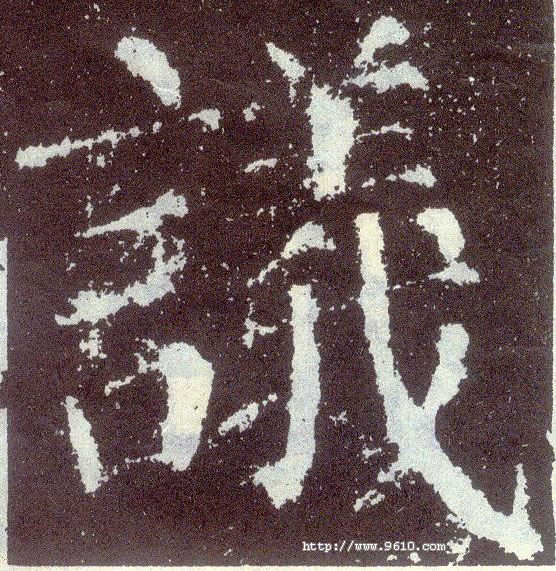 議
http://www.9610.com